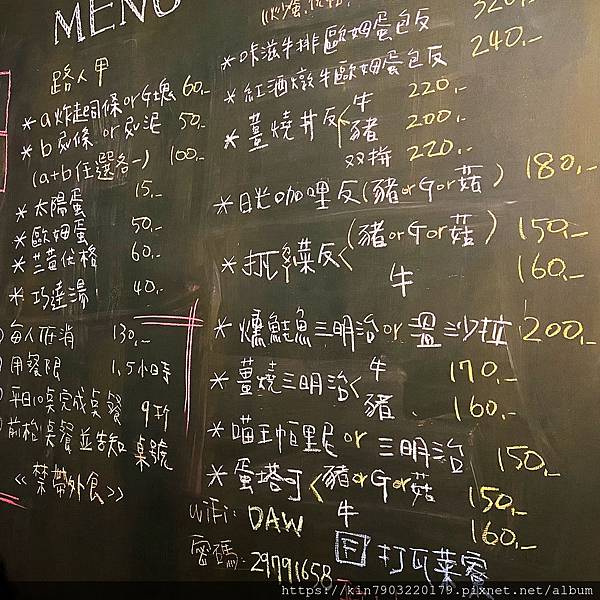 MENU
路人甲
*a炸起司條orG塊 60.-
*b 薯條 or 薯泥 50.-
(a+b任選各一) 100.-
*太陽蛋 15.-
*歐姆蛋 50.-
60.-
*巧達湯 40.-
每人低消 130.-
用餐限 1.5小時
平日10桌完成桌餐
並告知 桌號
《禁帶外食》
320.-
*咔滋牛排歐姆蛋包反 240.-
*紅酒燉牛歐姆蛋包反
*薑燒丼反<
牛 220.-
豬 200.-
双拼 220.-
*日光咖哩反(豬orGor菇) 180.-
(豬orGor菇) 150.-
牛 160.-
*燻鮭魚三明治or溫沙拉 200.-
*薑燒三明治<
牛 170.-
豬 160.-
*喵王帕里尼or三明治 150.-
*蛋塔可<
豬orGor菇 150.-
牛 160.-
wiFi: DAW
密碼: 29791658
F 打瓦萊客
https://kin7903220179.pixnet.net/album